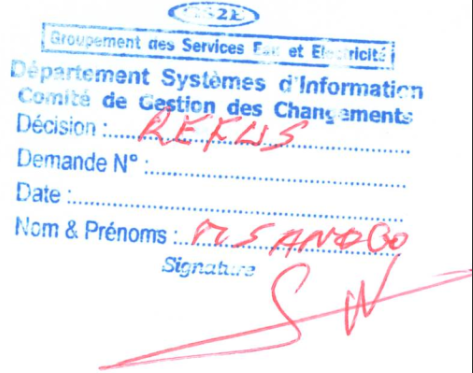 GS2E
Groupement des Services Eau et Electricité
Département Systèmes d'Information
Comité de Gestion des Changements
Décision : REFUS
Demande N° :
Date :
Nom & Prénoms : M SANOGO
Signature